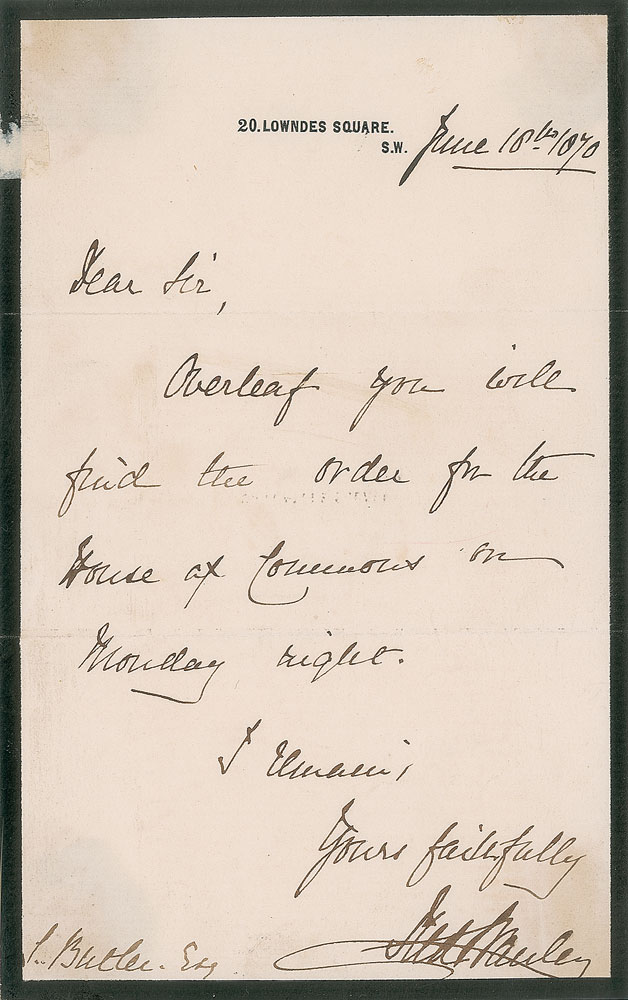 20. LOWNDES SQUARE.
S.W.
June 18th 1870
Dear Sir,
Overleaf you will
find the order for the
House of Commons on
Monday night.
I remain,
Yours faithfully
Butler. Esq